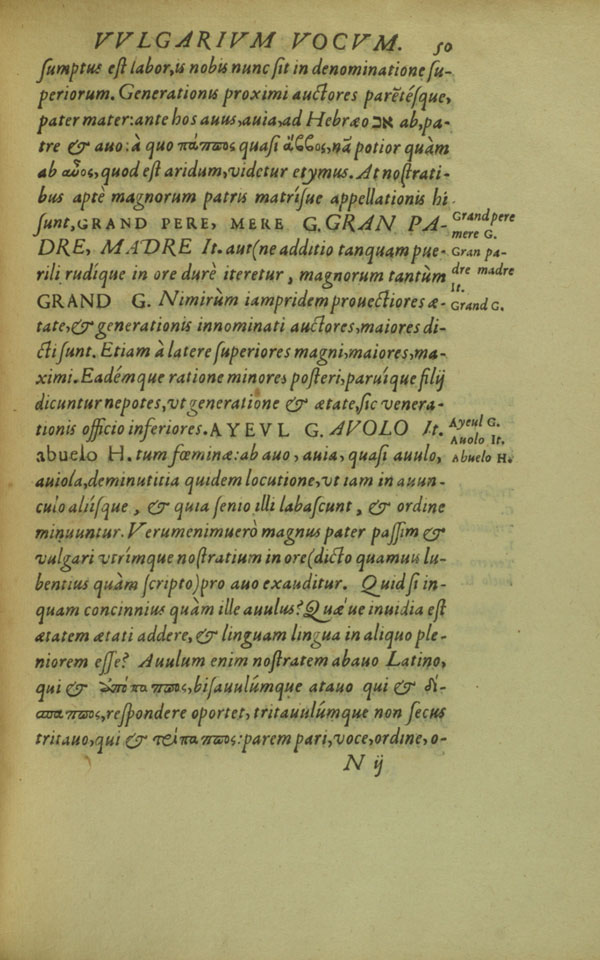 VVLGARIVM VOCVM. 50
sumptus est labor, is nobis nunc sit in denominatione su-
periorum. Generationis proximi auctores parẽtésque,
pater mater: ante hos auus, auia, ad Hebræo אב ab, pa-
tre & auo: à quo πάππος quasi ἄββος, nã potior quàm
ab quod est aridum, videtur etymus. At nostrati-
bus aptè magnorum patris matrisue appellationis hi
sunt, GRAND PERE, MERE G. GRAN PA-
DRE, MADRE It. aut (ne additio tanquam pue-
rili rudíque in ore durè iteretur, magnorum tantùm
GRAND G. Nimirùm iampridem prouectiores æ-
tate, & generationis innominati auctores, maiores di-
cti sunt. Etiam à latere superiores magni, maiores, ma-
ximi. Eadémque ratione minores posteri, paruíque filij
dicuntur nepotes, vt generatione & ætate, sic venera-
tionis officio inferiores. AYEVL G. AVOLO It.
abuelo H. tum fœminæ: ab auo, auia, quasi auulo,
auiola, deminutitia quidem locutione, vt iam in auun-
culo aliísque, & quia senio illi labascunt, & ordine
minuuntur. Verumenimuerò magnus pater passim &
vulgari vtrimque nostratium in ore (dicto quamuis lu-
bentius quàm scripto) pro auo exauditur. Quid si in-
quam concinnius quàm ille auulus? Quæ'ue inuidia est
ætatem ætati addere, & linguam lingua in aliquo ple-
niorem esse? Auulum enim nostratem abauo Latino,
qui & bisauulúmque atauo qui & δί-
αππαππος, respondere oportet, tritauulúmque non secus
tritauo, qui & τείπαππος: parem pari, voce, ordine, o-
N ij
Grand pere
mere G.
Gran pa-
dre madre
It.
Grand G.
Ayeul G.
Auolo It.
Abuelo H.